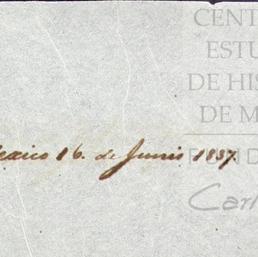 CENT
ESTU
DE HIS
DE M
exico 16. de Junio 1857.
FUND
Carl